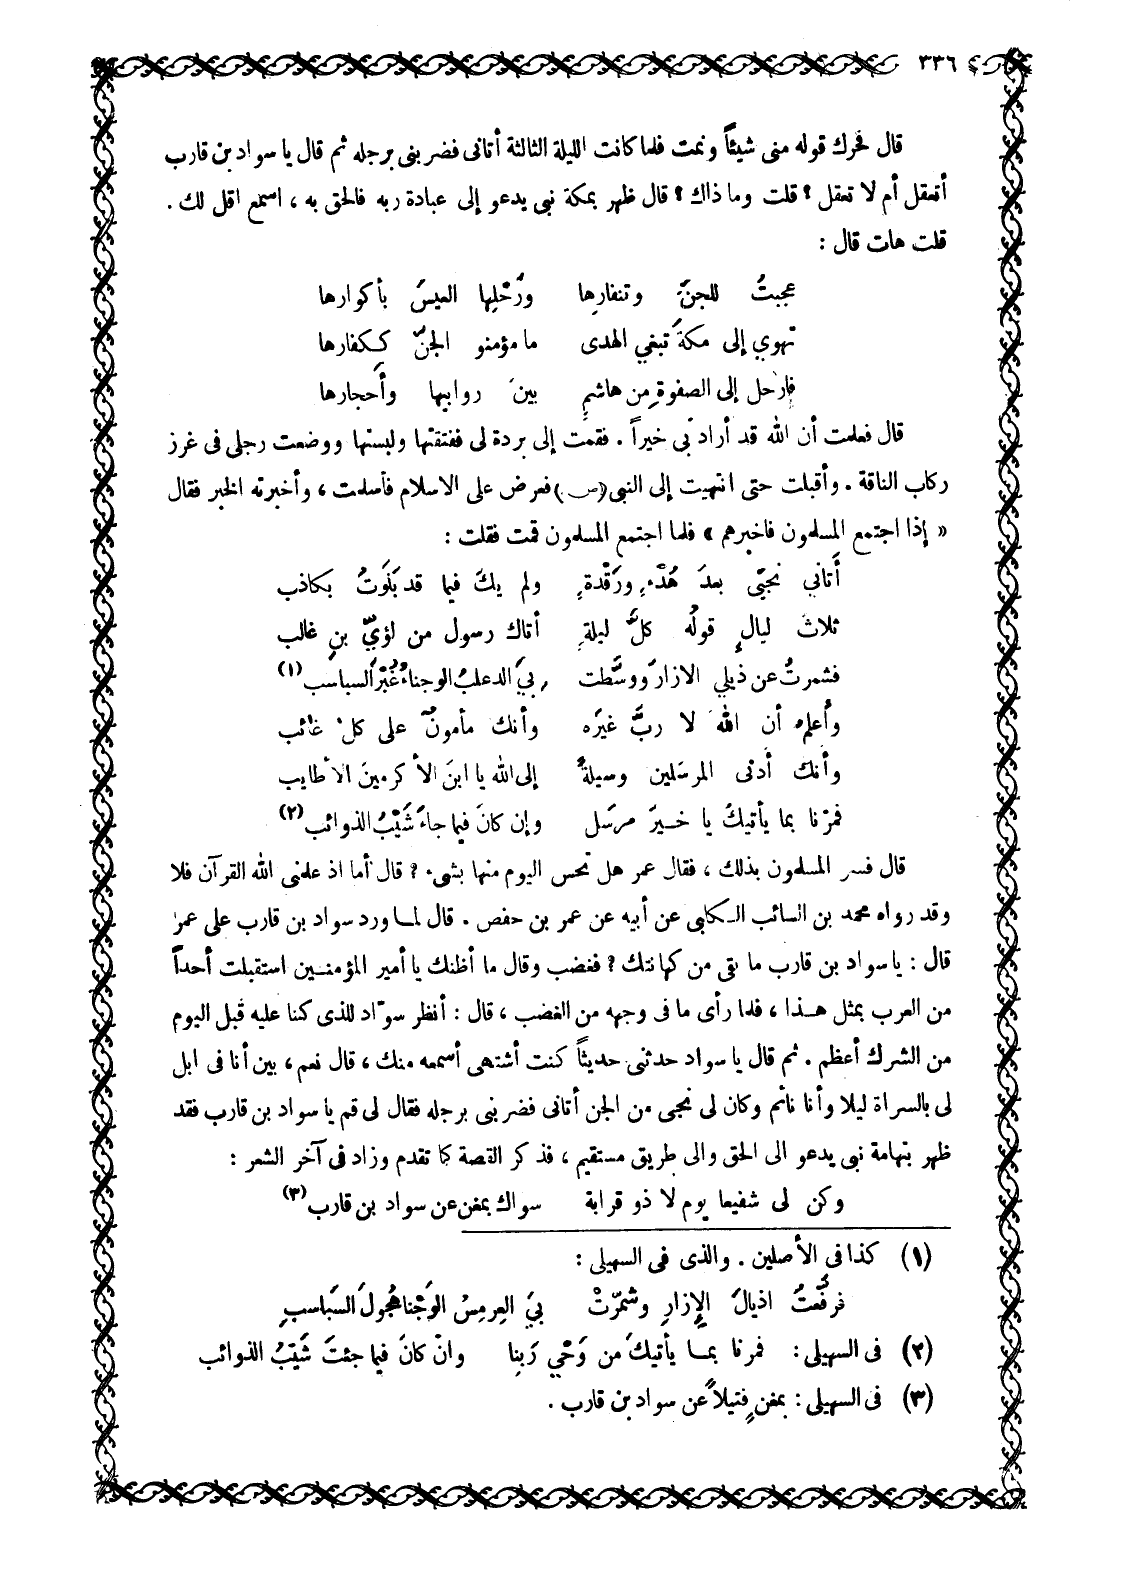 ٣٣٦
قال فحرك قوله منى شيئاً ونمت فلما كانت الليلة الثالثة أتانى فضربنى برجله ثم قال يا سواد بن قارب
أتعقل أم لا تعقل ؟ قلت وما ذاك ؟ قال ظهر بمكة نبى يدعو إلى عبادة ربه فالحق به ، اسمع اقل لك .
قلت هات قال :
عجبتُ للجنِّ وتنفارِها ورُحْلِها العيسَ بأكوارها
تهوي إلى مكةَ تبغي الهدى ما مؤمنو الجنّ ككفارها
فارْحل إلى الصفوةِ من هاشمٍ بينَ روابيها وأَحجارها
قال فعلمت أن الله قد أراد بى خيراً . فقمت إلى بردة لى ففتقتها ولبستها ووضعت رجلى فى غرز
ركاب الناقة . وأقبلت حتى انتهيت إلى النبى (ص) فعرض على الاسلام فأسلمت ، وأخبرته الخبر فقال
« إذا اجتمع المسلمون فاخبرهم » فلما اجتمع المسلمون قمت فقلت :
أَتاني نجيّي بعدَ هَدْءٍ ورَقْدةٍ ولم يكَ فيما قد بَلَوَتُ بكاذب
ثلاثَ ليالٍ قولُه كلَّ ليلةٍ أتاك رسول من لؤيّ بنِ غالب
فشمرتُ عن ذيلي الازارَ ووسَّطت بيَ الدعلبُ الوجناءُ غُبْرَ السباسب (١)
وأَعلم أن اللهَ لا ربَّ غيرَه وأنك مأمونٌ على كل غائب
وأنك أَدنى المرسَلين وسيلةً إلى الله يا ابنَ الأكرمينَ الأطايب
فمرْنا بما يأتيكَ يا خيرَ مرسَل وإن كانَ فيما جاءَ شَيْبُ الذوائب (٢)
قال فسر المسلمون بذلك ، فقال عمر هل تحس اليوم منها بشىء ؟ قال أما اذ علمنى الله القرآن فلا
وقد رواه محمد بن السائب الكلبى عن أبيه عن عمر بن حفص . قال لما ورد سواد بن قارب على عمر
قال : يا سواد بن قارب ما بقى من كهانتك ؟ فغضب وقال ما أظنك يا أمير المؤمنين استقبلت أحداً
من العرب بمثل هذا ، فلما رأى ما فى وجهه من الغضب ، قال : أنظر سواد للذى كنا عليه قبل اليوم
من الشرك أعظم . ثم قال يا سواد حدثنى حديثاً كنت أشتهى أسمعه منك ، قال نعم ، بين أنا فى ابل
لى بالسراة ليلا وأنا نائم وكان لى نجى من الجن أتانى فضربنى برجله فقال لى قم يا سواد بن قارب فقد
ظهر بتهامة نبى يدعو الى الحق والى طريق مستقيم ، فذكر القصة كما تقدم وزاد فى آخر الشعر :
وكن لى شفيعا يوم لا ذو قرابة سواك بمغن عن سواد بن قارب (٣)
(١) كذا فى الأصلين . والذى فى السهيلى :
فرفَّعتُ اذيالَ الإِزارِ وشمَّرتْ بيَ العِرمِسُ الوَجْنا هُجُولَ السَباسبِ
(٢) فى السهيلى : فمرنا بما يأتيكَ من وَحْيِ رَبِنا وانْ كانَ فيما جئتَ شَيْبُ الذوائب
(٣) فى السهيلى : بمغنٍ فتيلاً عن سواد بن قارب .